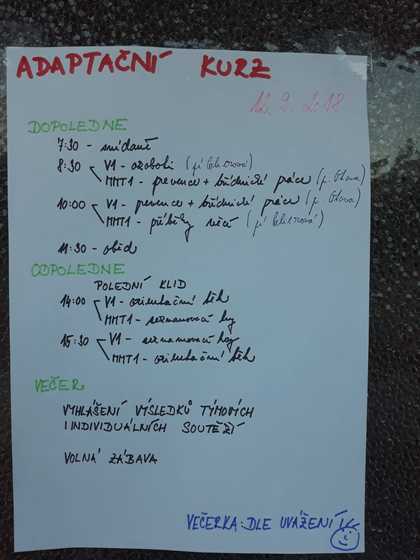 ADAPTAČNÍ KURZ
12. 9. 2018
DOPOLEDNE
7:30 - snídaně
8:30 V1 - ozoboti
MMT1 - prevence + třídnické práce
10:00 V1 - prevence + třídnické práce
MMT1 - příběhy věcí
11:30 - oběd
ODPOLEDNE
POLEDNÍ KLID
14:00 V1 - orientační běh
MMT1 - seznamovací hry
15:30 V1 - seznamovací hry
MMT1 - orientační běh
VEČER
VYHLÁŠENÍ VÝSLEDKŮ TÝMOVÝCH
I INDIVIDUÁLNÍCH SOUTĚŽÍ
VOLNÁ ZÁBAVA
VEČERKA: DLE UVÁŽENÍ